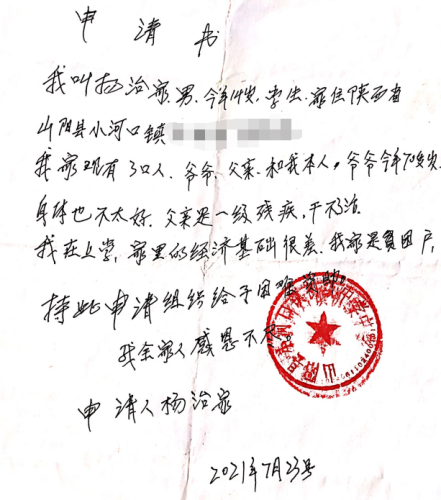 申请书
我叫杨治家,男,今年14岁,学生,家住陕西省
山阳县小河口镇
我家现有3口人,爷爷、父亲、和我本人。爷爷今年70岁,
身体也不太好,父亲是一级残疾,干不活
我在上学,家里的经济基础很差,我家是贫困户,
持此申请组织给予困难资助。
我全家人感恩不尽。
申请人杨治家
2021年7月23号